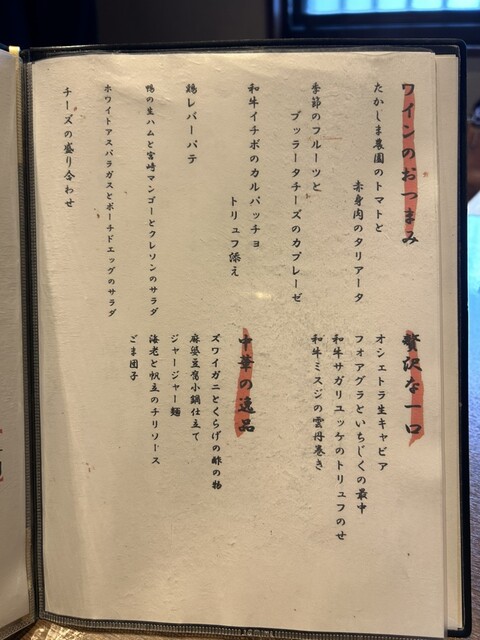 ワインのおつまみ
たかしま農園のトマトと
赤身肉のタリアータ
季節のフルーツと
ブッラータチーズのカプレーゼ
和牛イチボのカルパッチョ
トリュフ添え
鶏レバーパテ
鴨の生ハムと宮崎マンゴーとクレソンのサラダ
ホワイトアスパラガスとポーチドエッグのサラダ
チーズの盛り合わせ
贅沢な一口
オシェトラ生キャビア
フォアグラといちじくの最中
和牛サガリユッケのトリュフのせ
和牛ミスジの雲丹巻き
中華の逸品
ズワイガニとくらげの酢の物
麻婆豆腐小鍋仕立て
ジャージャー麺
海老と帆立のチリソース
ごま団子